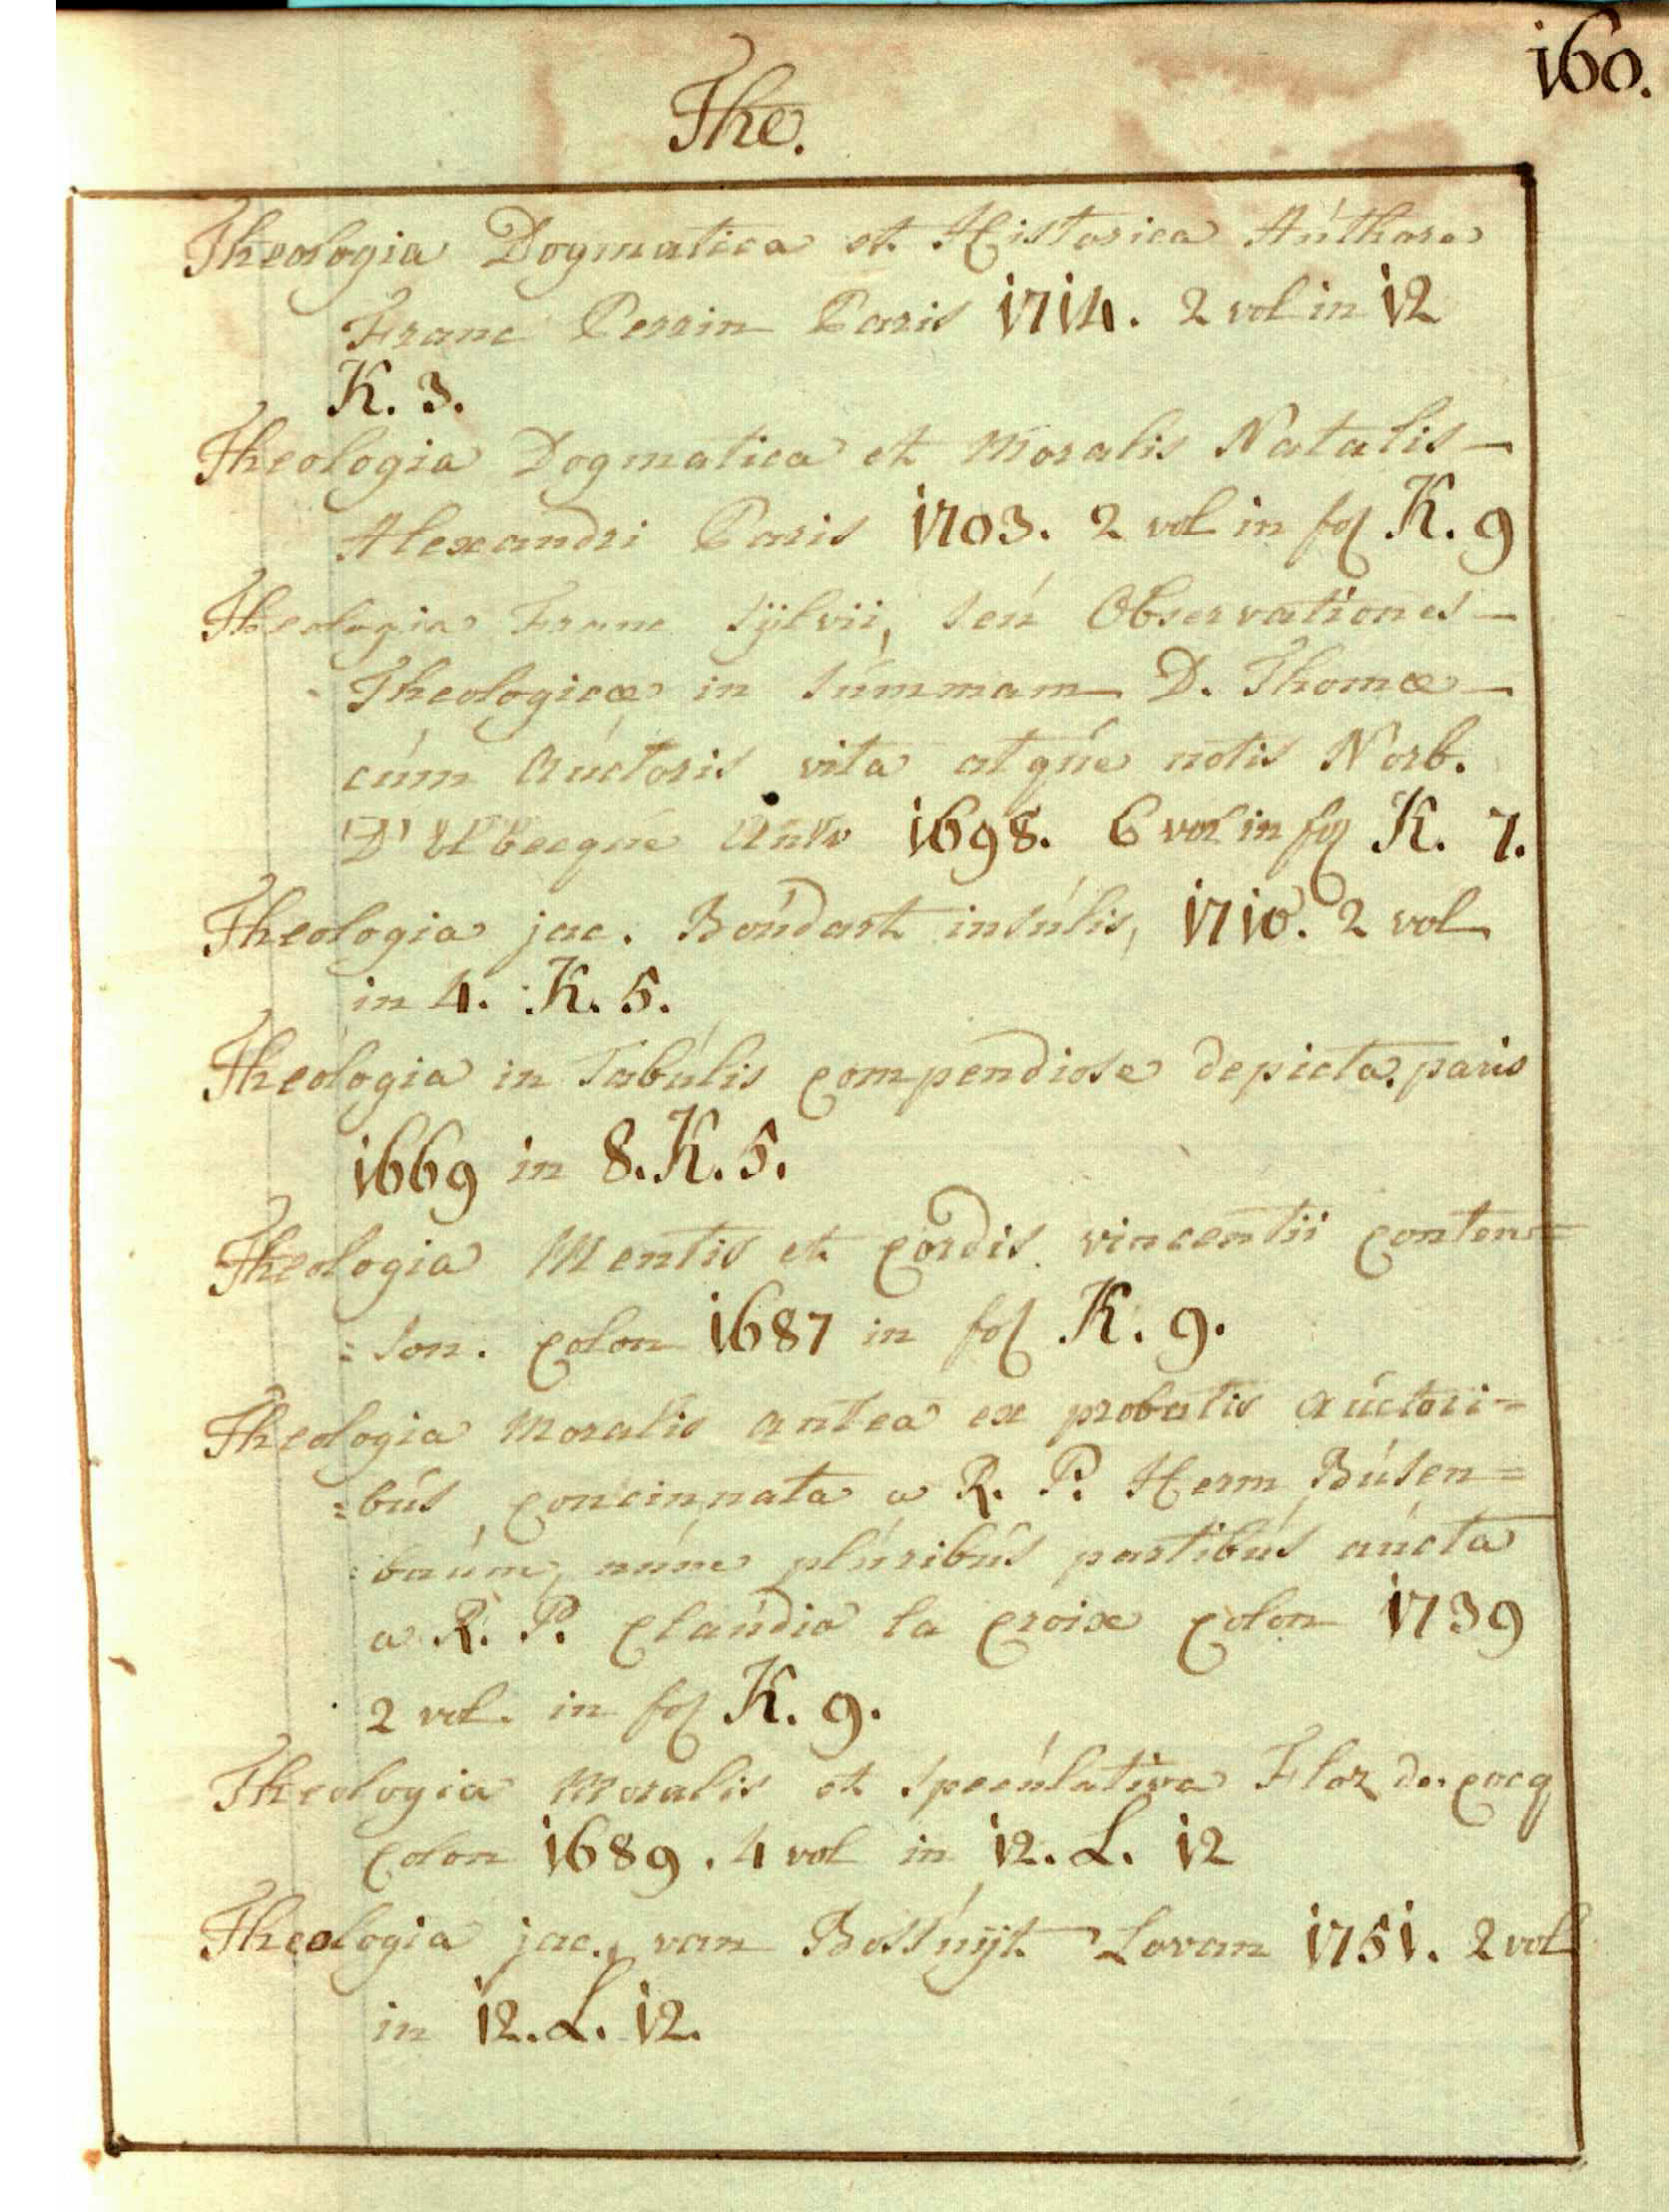 160.
The.
Theologia Dogmatica et Historica Aúthore
Franc Perrin Paris 1714. 2 vol in 12
K. 3.
Theologia Dogmatica et Moralis Natalis —
Alexandri Paris 1703. 2 vol in fol K. 9
Theologia Franc Sÿlvii, Seú Observationes —
Theologicæ in Súmmam D. Thomæ —
cúm Aúctoris vita atqúe notis Norb.
D'Elbecqúe Antv 1698. 6 vol in fol K. 7.
Theologia jac. Boúdart insúlis, 1710. 2 vol
in 4. K. 5.
Theologia in Tabúlis compendiose depicta. paris
1669 in 8. K. 5.
Theologia Mentis et cordis vincentii conten=
=son. colon 1687 in fol K. 9.
Theologia Moralis antea ex probatis aúctori=
=bús concinnata a R. P. Herm Búsen=
=baúm, núnc plúribús partibús aúcta
a R. P. claúdio la croix colon 1739
2 vol. in fol K. 9.
Theologia Moralis et Specúlativa Flor de cocq
colon 1689. 4 vol in 12. L. 12
Theologia jac. van Bossúÿt Lovan 1751. 2 vol
in 12. L. 12.